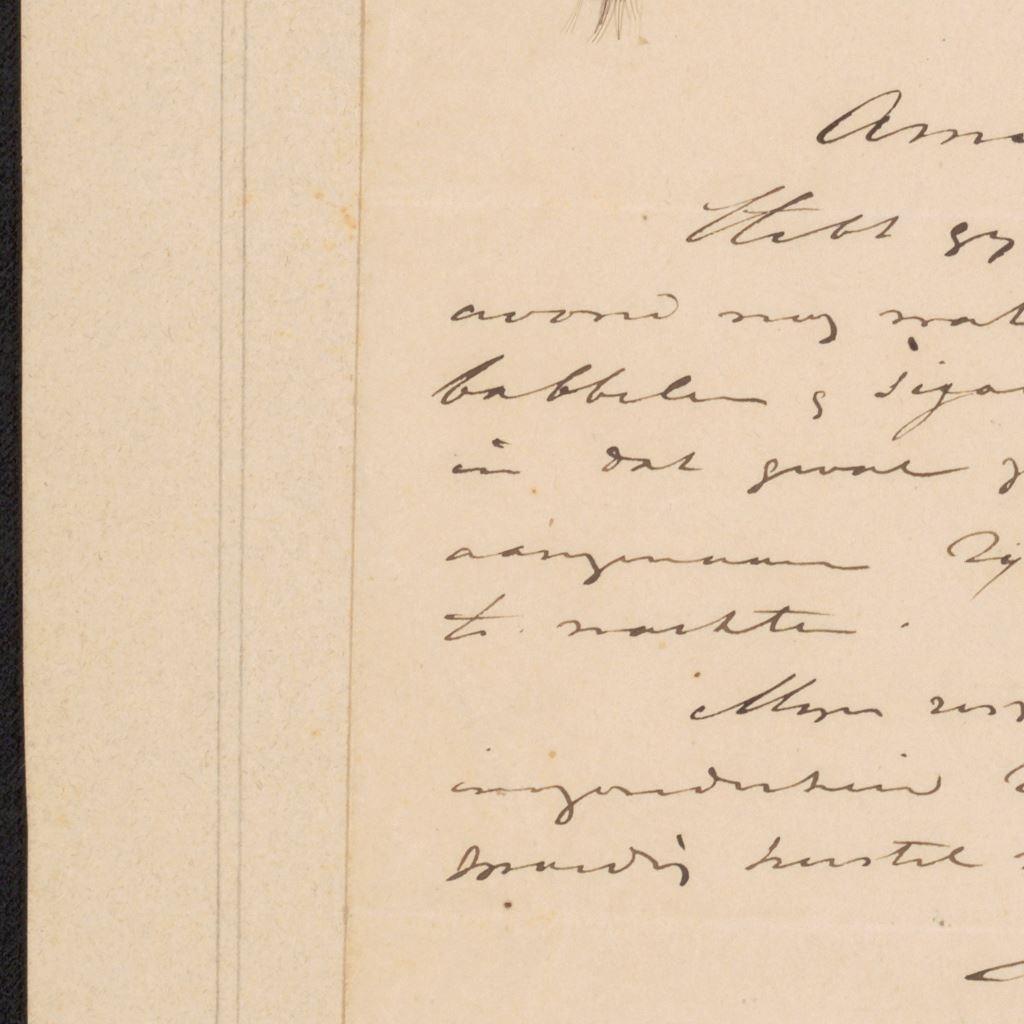 Ams
Hebt gy
avond nog wat
babbelen & siga
in dat geval z
aangenaam zij
te wachten.
Myn res
ingesteldheid
spoedig herstel